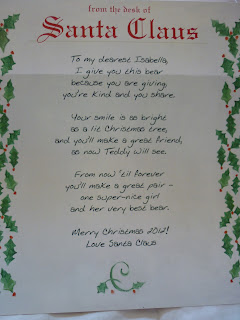 from the desk of
Santa Claus
To my dearest Isabella,
I give you this bear
because you are giving,
you're kind and you share.
Your smile is so bright
as a lit Christmas tree,
and you'll make a great friend,
as now Teddy will see.
From now 'til forever
you'll make a great pair -
one super-nice girl
and her very best bear.
Merry Christmas 2012!
Love Santa Claus